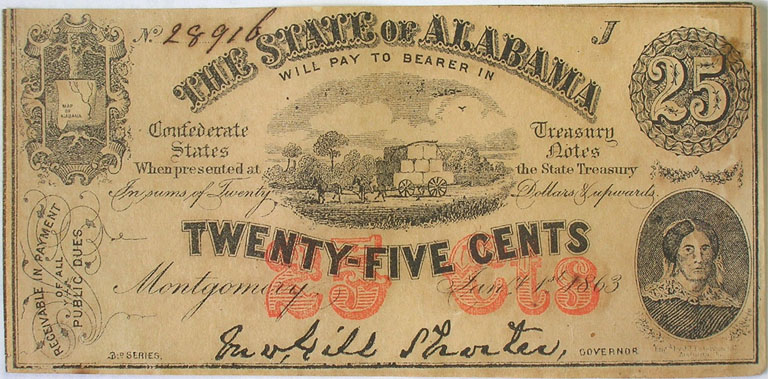 No. 28916
J
THE STATE OF ALABAMA
25
WILL PAY TO BEARER IN
MAP OF ALABAMA
Confederate States
Treasury Notes
When presented at
the State Treasury
In sums of Twenty
Dollars & upwards
TWENTY-FIVE CENTS
25 Cts
RECEIVABLE IN PAYMENT
OF ALL
PUBLIC DUES
Montgomery, Jany. 1st 1863
3RD SERIES.
Jno. Gill Shorter,
GOVERNOR